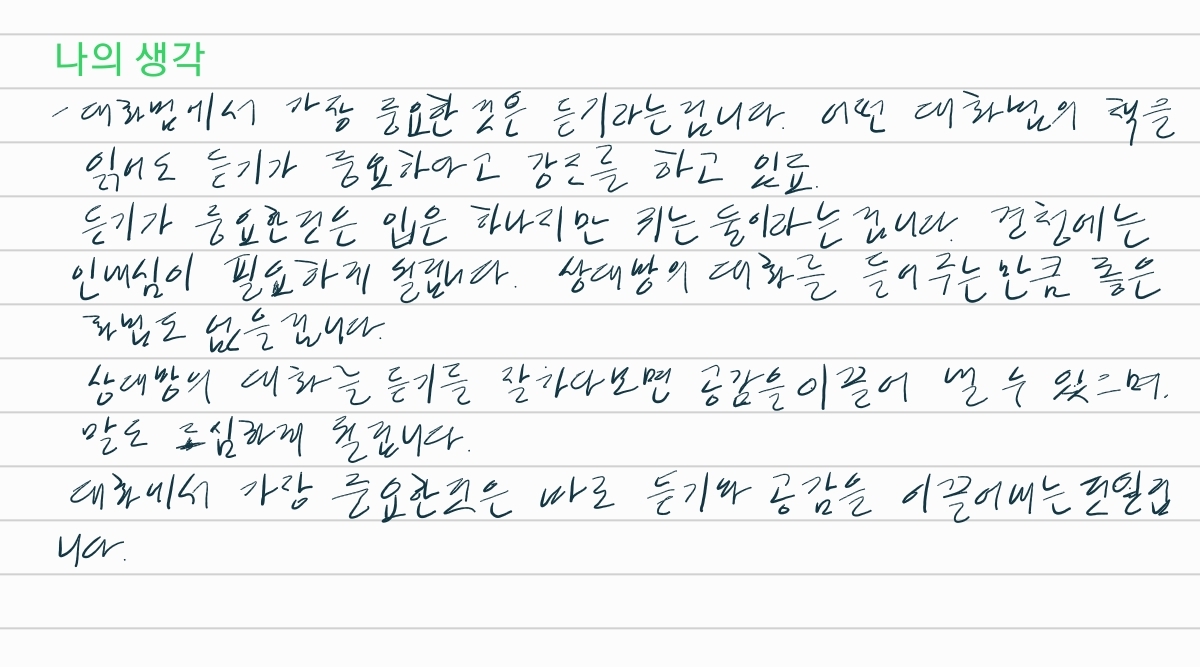 나의 생각
- 대화법에서 가장 중요한 것은 듣기라는 겁니다. 어떤 대화법의 책을
읽어도 듣기가 중요하다고 강조를 하고 있죠.
듣기가 중요한건은 입은 하나지만 귀는 둘이라는 겁니다. 경청에는
인내심이 필요하게 될겁니다. 상대방의 대화를 들어주는 만큼 좋은
화법도 없을 겁니다.
상대방의 대화를 듣기를 잘하다보면 공감을 이끌어 낼 수 있으며.
말도 조심하게 될겁니다.
대화에서 가장 중요한것은 바로 듣기와 공감을 이끌어내는 것일겁
니다.